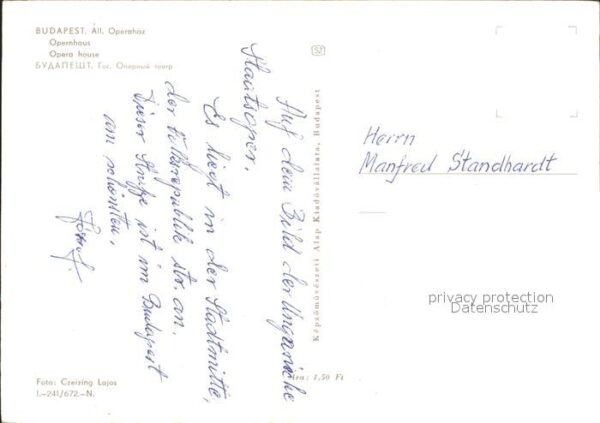 BUDAPEST. Áll. Operaház
Opernhaus
Opera house
БУДАПЕШТ. Гос. Оперный театр
Auf dem Bild der Ungarische
Staatsoper.
Es liegt in der Stadtmitte,
der Volksrepublik str. an.
Diese Straße ist im Budapest
am schönsten.
József
Foto: Czeizing Lajos
I.—241/672.—N.
Képzőművészeti Alap Kiadóvállalata, Budapest
Ára: 1,50 Ft
Herrn
Manfred Standhardt
privacy protection
Datenschutz